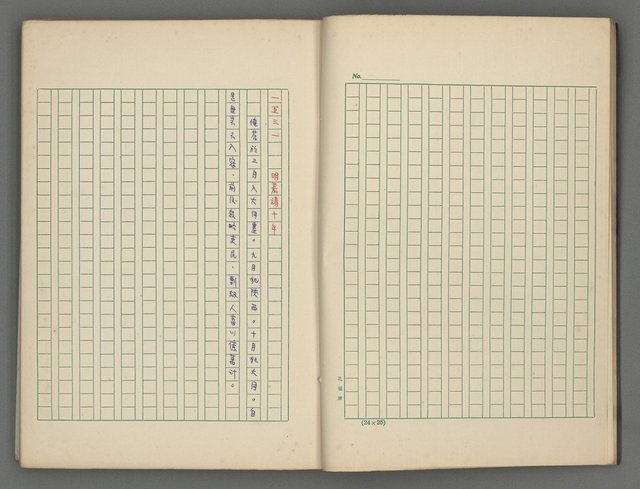 No.
(24×25)
一五三一 明嘉靖十年
俺答於二月入大同塞。九月犯陝西。十月犯大同。自
是無歲不入寇,前后殺略吏民,剽敓人畜以億萬計。